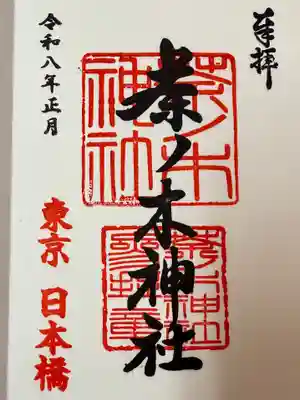 奉拝
茶ノ木神社
茶ノ木
神社
東京 日本橋
令和八年正月